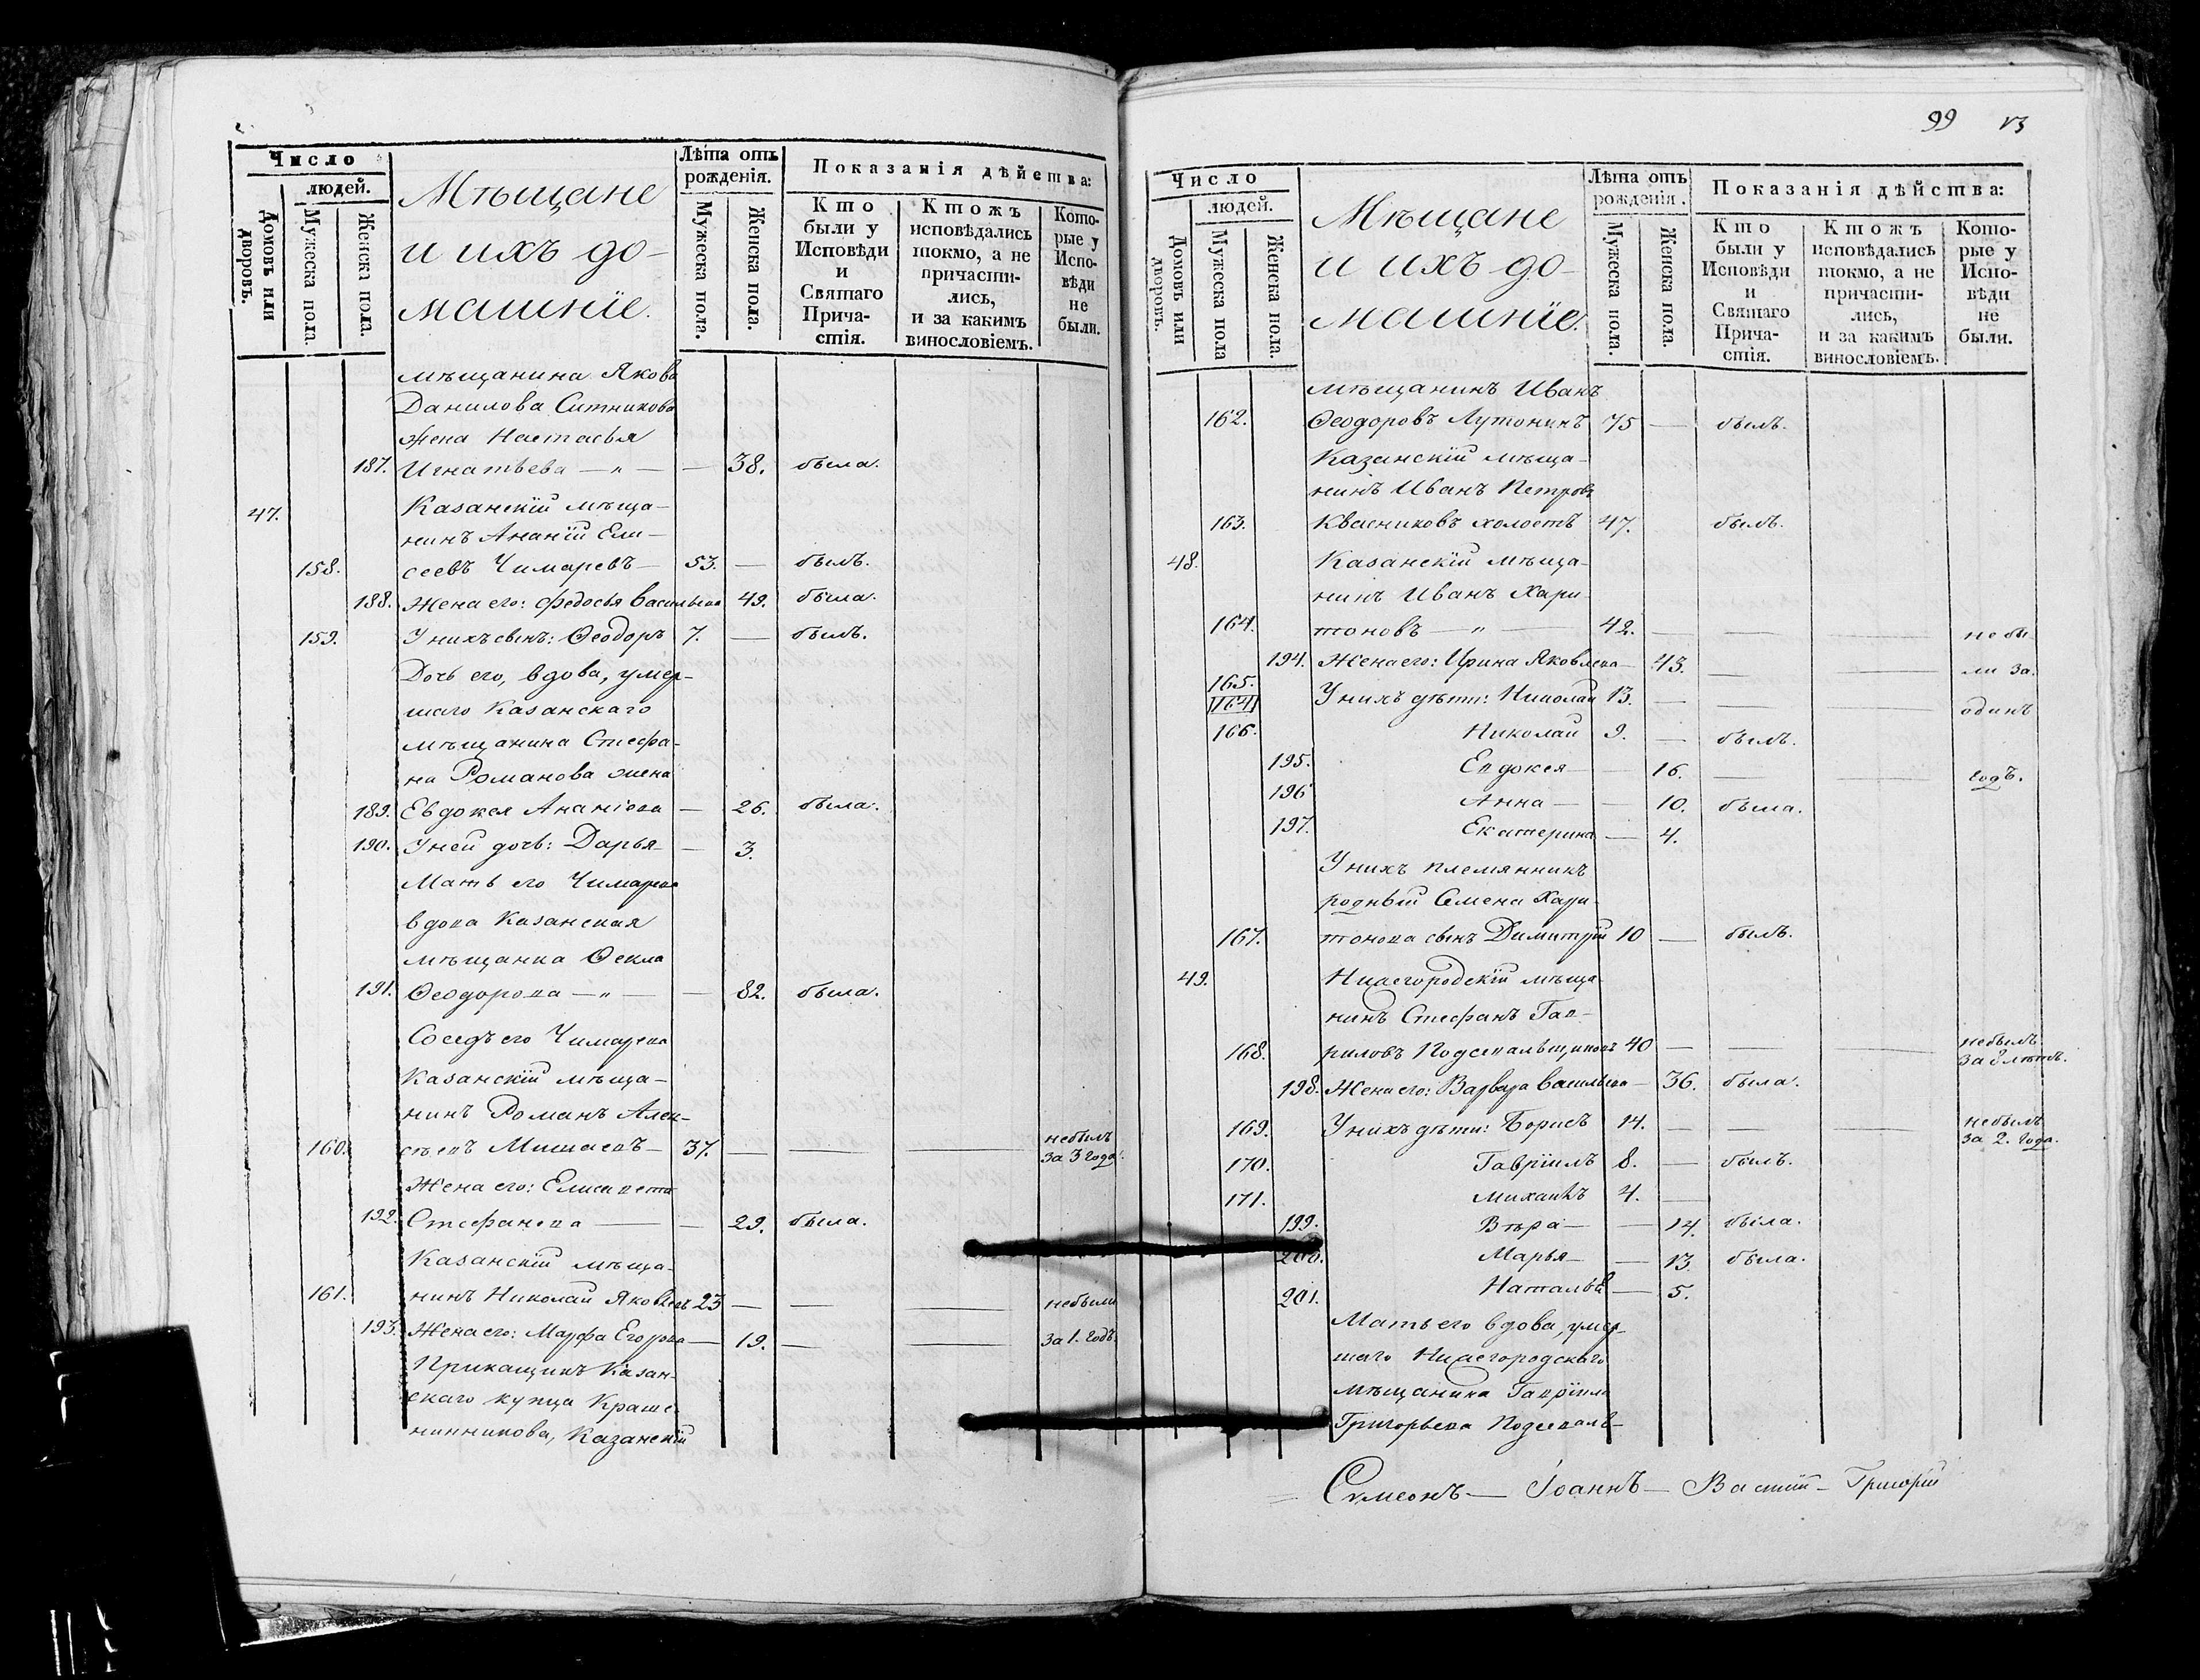 Число
людей.
Домовъ или дворовъ.
Мужеска пола.
Женска пола.
Мѣщане
и ихъ до-
машніе.
Лѣта отъ
рожденія.
Мужеска пола.
Женска пола.
Показанія дѣйства:
Кто
были у
Исповѣди
и
Святаго
Прича-
стія.
Ктожъ
исповѣдались
токмо, а не
причасти-
лись,
и за какимъ
винословіемъ.
Кото-
рые у
Испо-
вѣди
не
были.
мѣщанина Якова
Данилова Ситникова
жена Настасья
187. Игнатьева — „ — — 38. была.
47. Казанскій мѣща-
нинъ Ананій Ели-
158. сеевъ Чимаревъ — 53. — былъ.
188. Жена его: Федосья Васильева 49. была.
159. У нихъ сынъ: Ѳеодоръ 7. — былъ.
Дочь его, вдова, умер-
шаго Казанскаго
мѣщанина Стефа-
на Романова жена
189. Евдокея Ананіева — 26. была.
190. У ней дочь: Дарья — 3.
Мать его Чимарева
вдова Казанская
мѣщанка Ѳекла
191. Ѳеодорова — „ — — 82. была.
Соседъ его Чимарева
Казанскій мѣща-
нинъ Романъ Алек-
160. сѣевъ Мишаевъ — 37. — — — небылъ
за 3 года.
Жена его: Елисавета
192. Стефанова — — 29. была.
Казанскій мѣща-
161. нинъ Николай Яковлевъ 23 — — — небыли
193. Жена его: Марфа Егорова — 19. — — за 1. годъ.
Прикащикъ Казан-
скаго купца Краше-
нинникова, Казанскій
99 13
Число
людей.
Домовъ или дворовъ.
Мужеска пола
Женска пола.
Мѣщане
и ихъ до-
машніе.
Лѣта отъ
рожденія.
Мужеска пола.
Женска пола.
Показанія дѣйства:
Кто
были у
Исповѣди
и
Святаго
Прича-
стія.
Ктожъ
исповѣдались
токмо, а не
причасти-
лись,
и за какимъ
винословіемъ.
Кото-
рые у
Испо-
вѣди
не
были.
мѣщанинъ Иванъ
162. Ѳеодоровъ Лутонинъ 75 — былъ.
Казанскій мѣща-
нинъ Иванъ Петровъ
163. Квасниковъ холостъ 47. былъ.
48. Казанскій мѣща-
нинъ Иванъ Хари-
164. тоновъ — „ — 42. — — — небы-
194. Жена его: Ирина Яковлева — 43. — — ли за.
165.
164 У нихъ дѣти: Николай 13. — — — одинъ
166. Николай 9. — былъ.
195. Евдокея — — 16. — — годъ.
196 Анна — — 10. была.
197. Екатерина — 4.
У нихъ племянникъ
родный Семена Хари-
167. тонова сынъ Димитрій 10 — былъ.
49. Нижегородскій мѣща-
нинъ Стефанъ Гав-
168. риловъ Подсевальщиковъ 40 — — — небылъ
за 8 лѣтъ.
198. Жена его: Варвара Васильева — 36. была.
169. У нихъ дѣти: Борисъ 14. — — — небылъ
за 2. года.
170. Гавріилъ 8. — былъ.
171. Михаилъ 4. —
199. Вѣра — — 14. была.
200. Марья — — 13. была.
201. Наталья — 5.
Мать его вдова, умер-
шаго Нижегородскаго
мѣщанина Гавріила
Григорьева Подсеваль-
Сѵмеонъ — Іоаннъ — Василій — Григорій